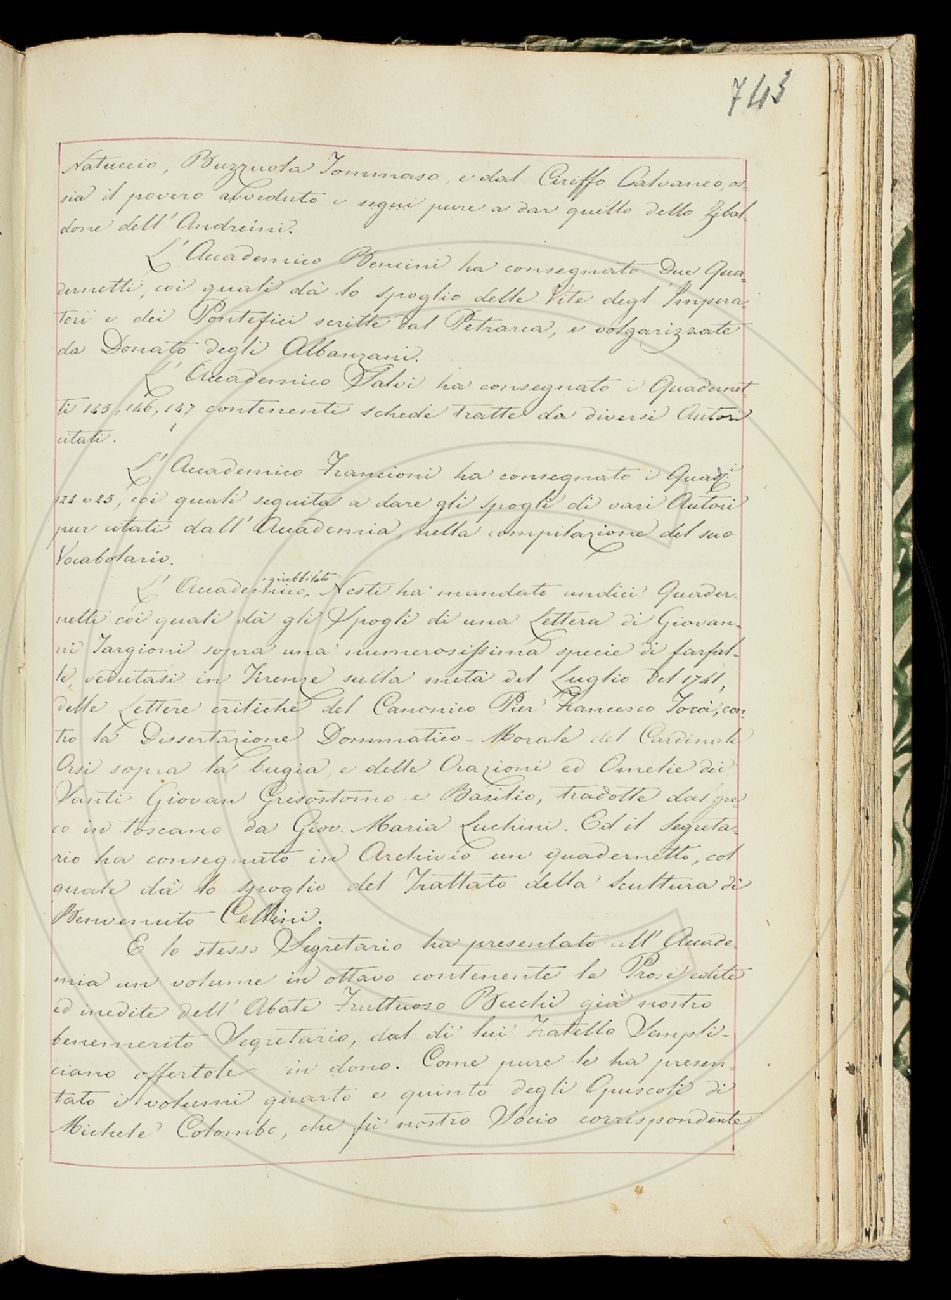 743
Natuccio, Buzzuola Tommaso, e dal Ciriffo Calvaneo, os-
sia il povero avveduto e seguì pure a dar quello dello Zibal-
done dell' Andreini.
L' Accademico Bencini ha consegnato Due Qua-
dernetti, coi quali dà lo spoglio delle Vite degl' Impera-
tori e dei Pontefici scritte dal Petrarca, e volgarizzate
da Donato degli Albanzani.
L' Accademico Salvi ha consegnato i Quadernet-
ti 145, 146, 147 contenenti schede tratte da diversi Autori
citati.
L' Accademico Francioni ha consegnato i Quad.i
e 25, coi quali seguita a dare gli spogli di vari Autori
pur citati dall' Accademia, nella compilazione del suo
Vocabolario.
L' Accademico giubbilato Nesti ha mandato undici Quader-
netti coi quali dà gli Spogli di una Lettera di Giovan-
ni Targioni sopra una numerosissima specie di farfal-
le vedutasi in Firenze sulla metà del Luglio del 1741,
delle Lettere critiche del Canonico Pier Francesco Tocci, con-
tro la Dissertazione Dommatico-Morale del Cardinale
Orsi sopra la bugia, e delle Orazioni ed Omelie dei
Santi Giovan Grisostomo e Basilio, tradotte dal gre-
co in toscano da Giov. Maria Luchini. Ed il Segreta-
rio ha consegnato in Archivio un quadernetto, col
quale dà lo spoglio del Trattato della Scultura di
Benvenuto Cellini.
E lo stesso Segretario ha presentato all' Accade-
mia un volume in ottavo contenente le Prose edite
ed inedite dell' Abate Fruttuoso Becchi già nostro
benemerito Segretario, dal di lui Fratello Sempli-
ciano offertole in dono. Come pure le ha presen-
tato i volumi quarto e quinto degli Opuscoli di
Michele Colombo, che fù nostro Socio corrispondente